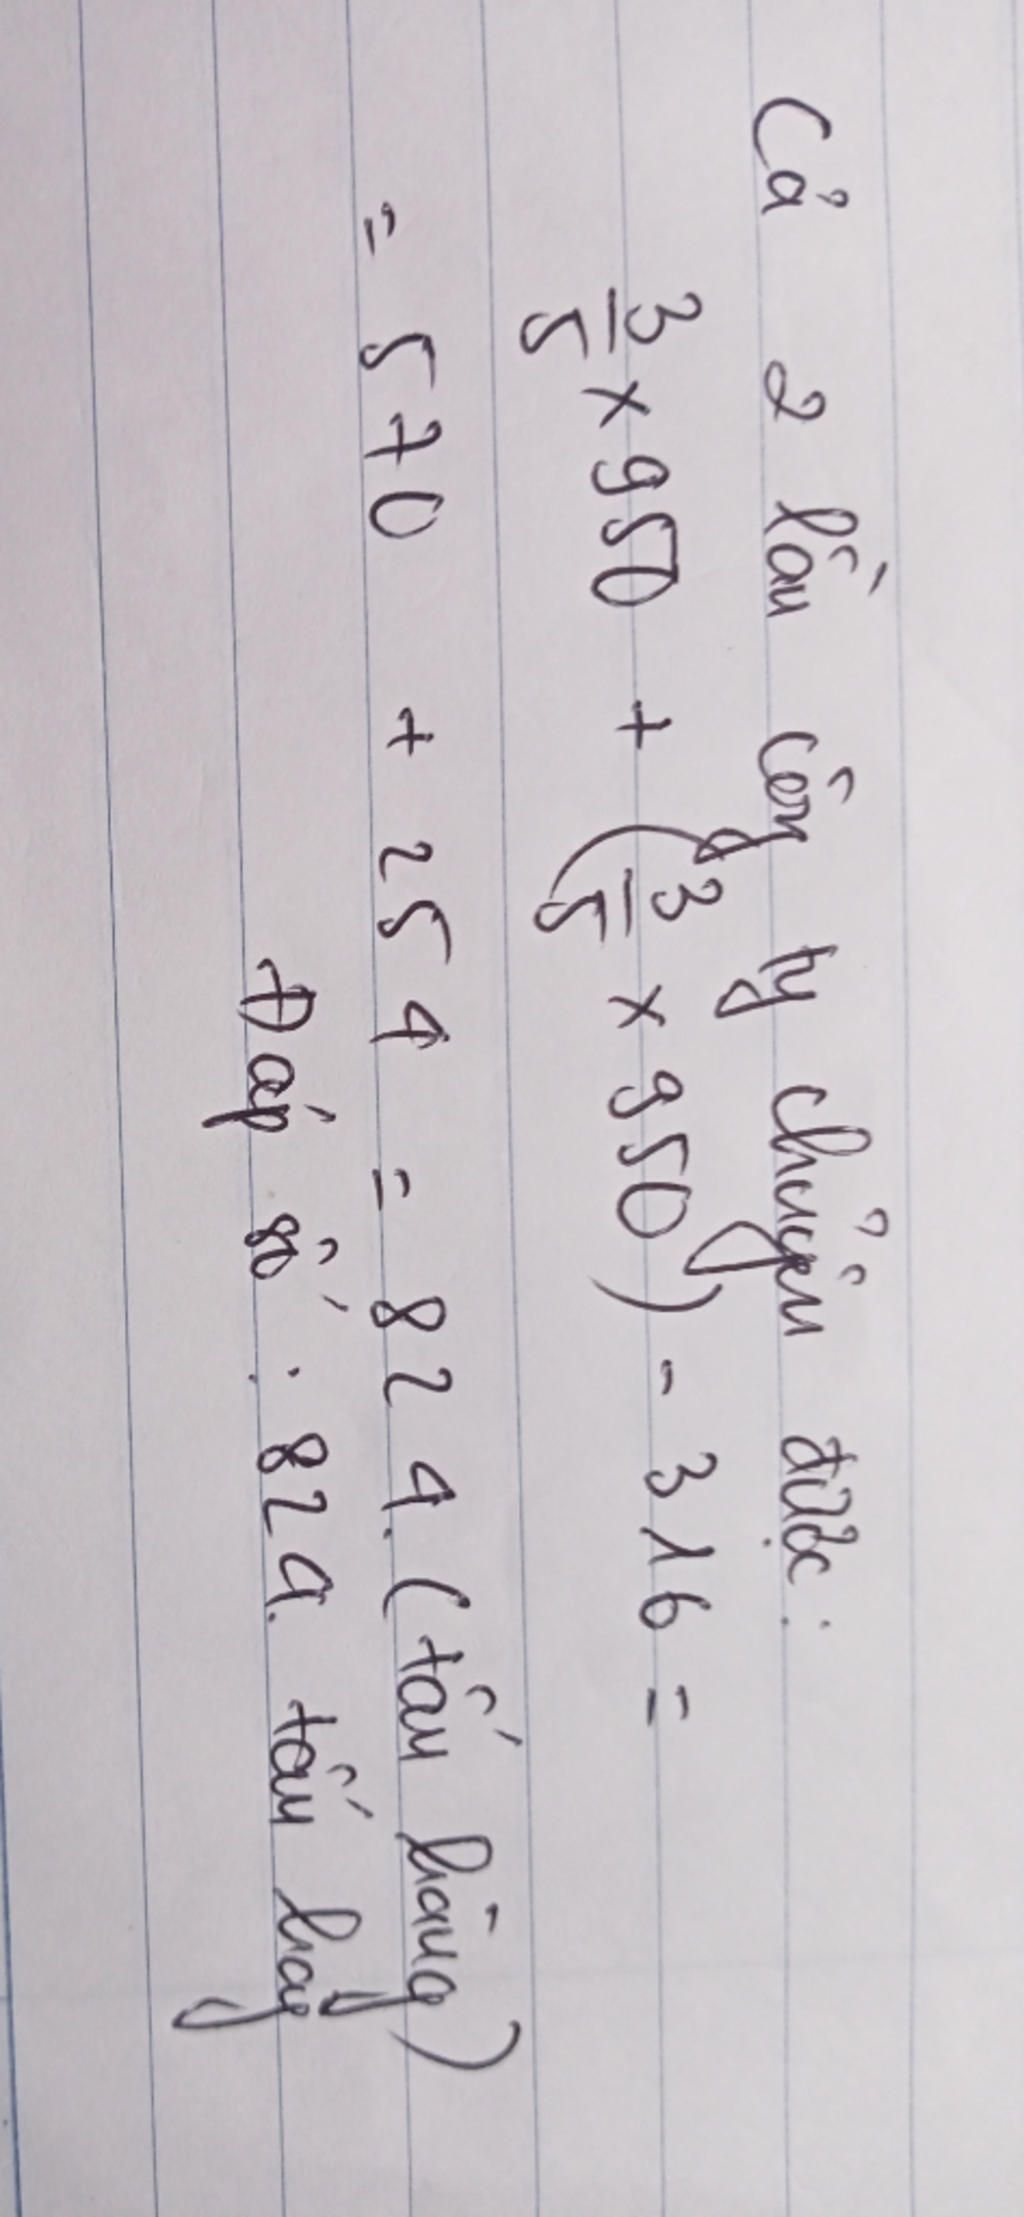 Cả 2 lần công ty chuyển được:
3/5 x 950 + (3/5 x 950) - 316 =
= 570 + 254 = 824. (tấn hàng)
Đáp số: 824. tấn hàg